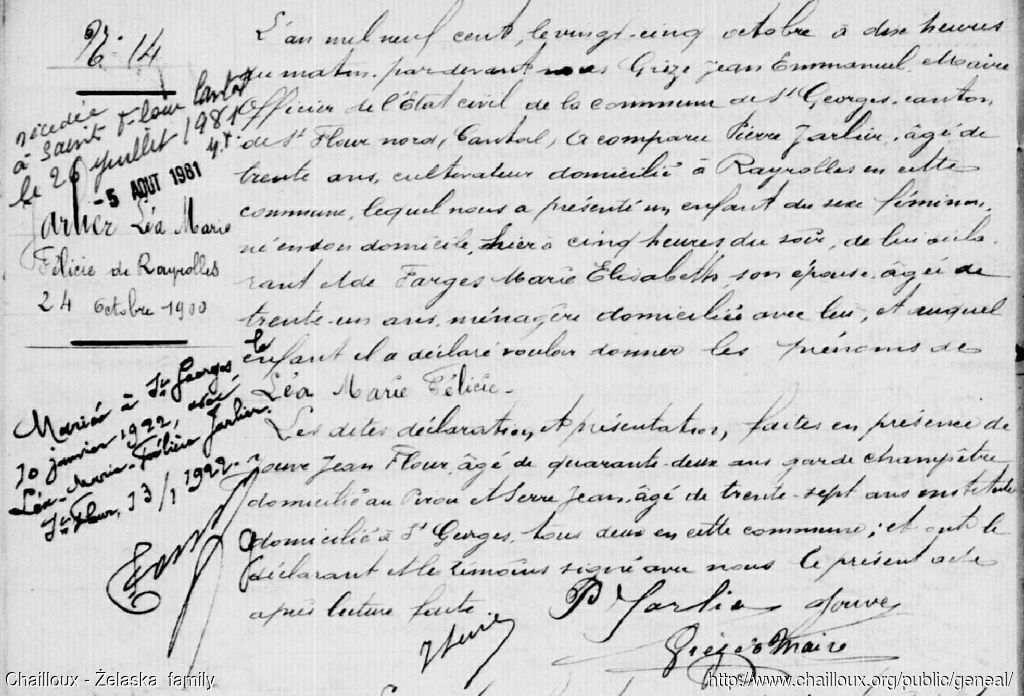 N° 14
décédée
à Saint-Flour Cantal
le 26 juillet 1981
-5 AOUT 1981
Jarlier Léa Marie
Félicie de Rayrolles
24 octobre 1900
Mariée à St Georges le
10 janvier 1922, avec
Léa-Marie-Félicie Jarlier.
St Flour, 13/1 1922.
L'an mil neuf cent, le vingt-cinq octobre à dix heures
du matin. par devant nous Grèze Jean Emmanuel. Maire
Officier de l'Etat civil de la commune de St Georges, canton
de St Flour nord, Cantal, a comparu Pierre Jarlier, âgé de
trente ans, cultivateur domicilié à Rayrolles en cette
commune, lequel nous a présenté un enfant du sexe féminin,
né en son domicile, hier à cinq heures du soir, de lui décla
rant et de Farges Marie Elisabeth, son épouse, âgée de
trente-un ans, ménagère domiciliée avec lui, et auquel
enfant il a déclaré vouloir donner les prénoms de
Léa Marie Félicie.
Les dites déclaration et présentation, faites en présence de
Jouve Jean Flour, âgé de quarante-deux ans garde champêtre
domicilié au Pirou et Serre Jean, âgé de trente-sept ans instituteur
domicilié à St Georges, tous deux en cette commune; et ont le
déclarant et les témoins signé avec nous le présent acte
après lecture faite.
P Jarlier Jouve
J Serre
Grèze Maire
Chailloux - Żelaska family
http://www.chailloux.org/public/geneal/